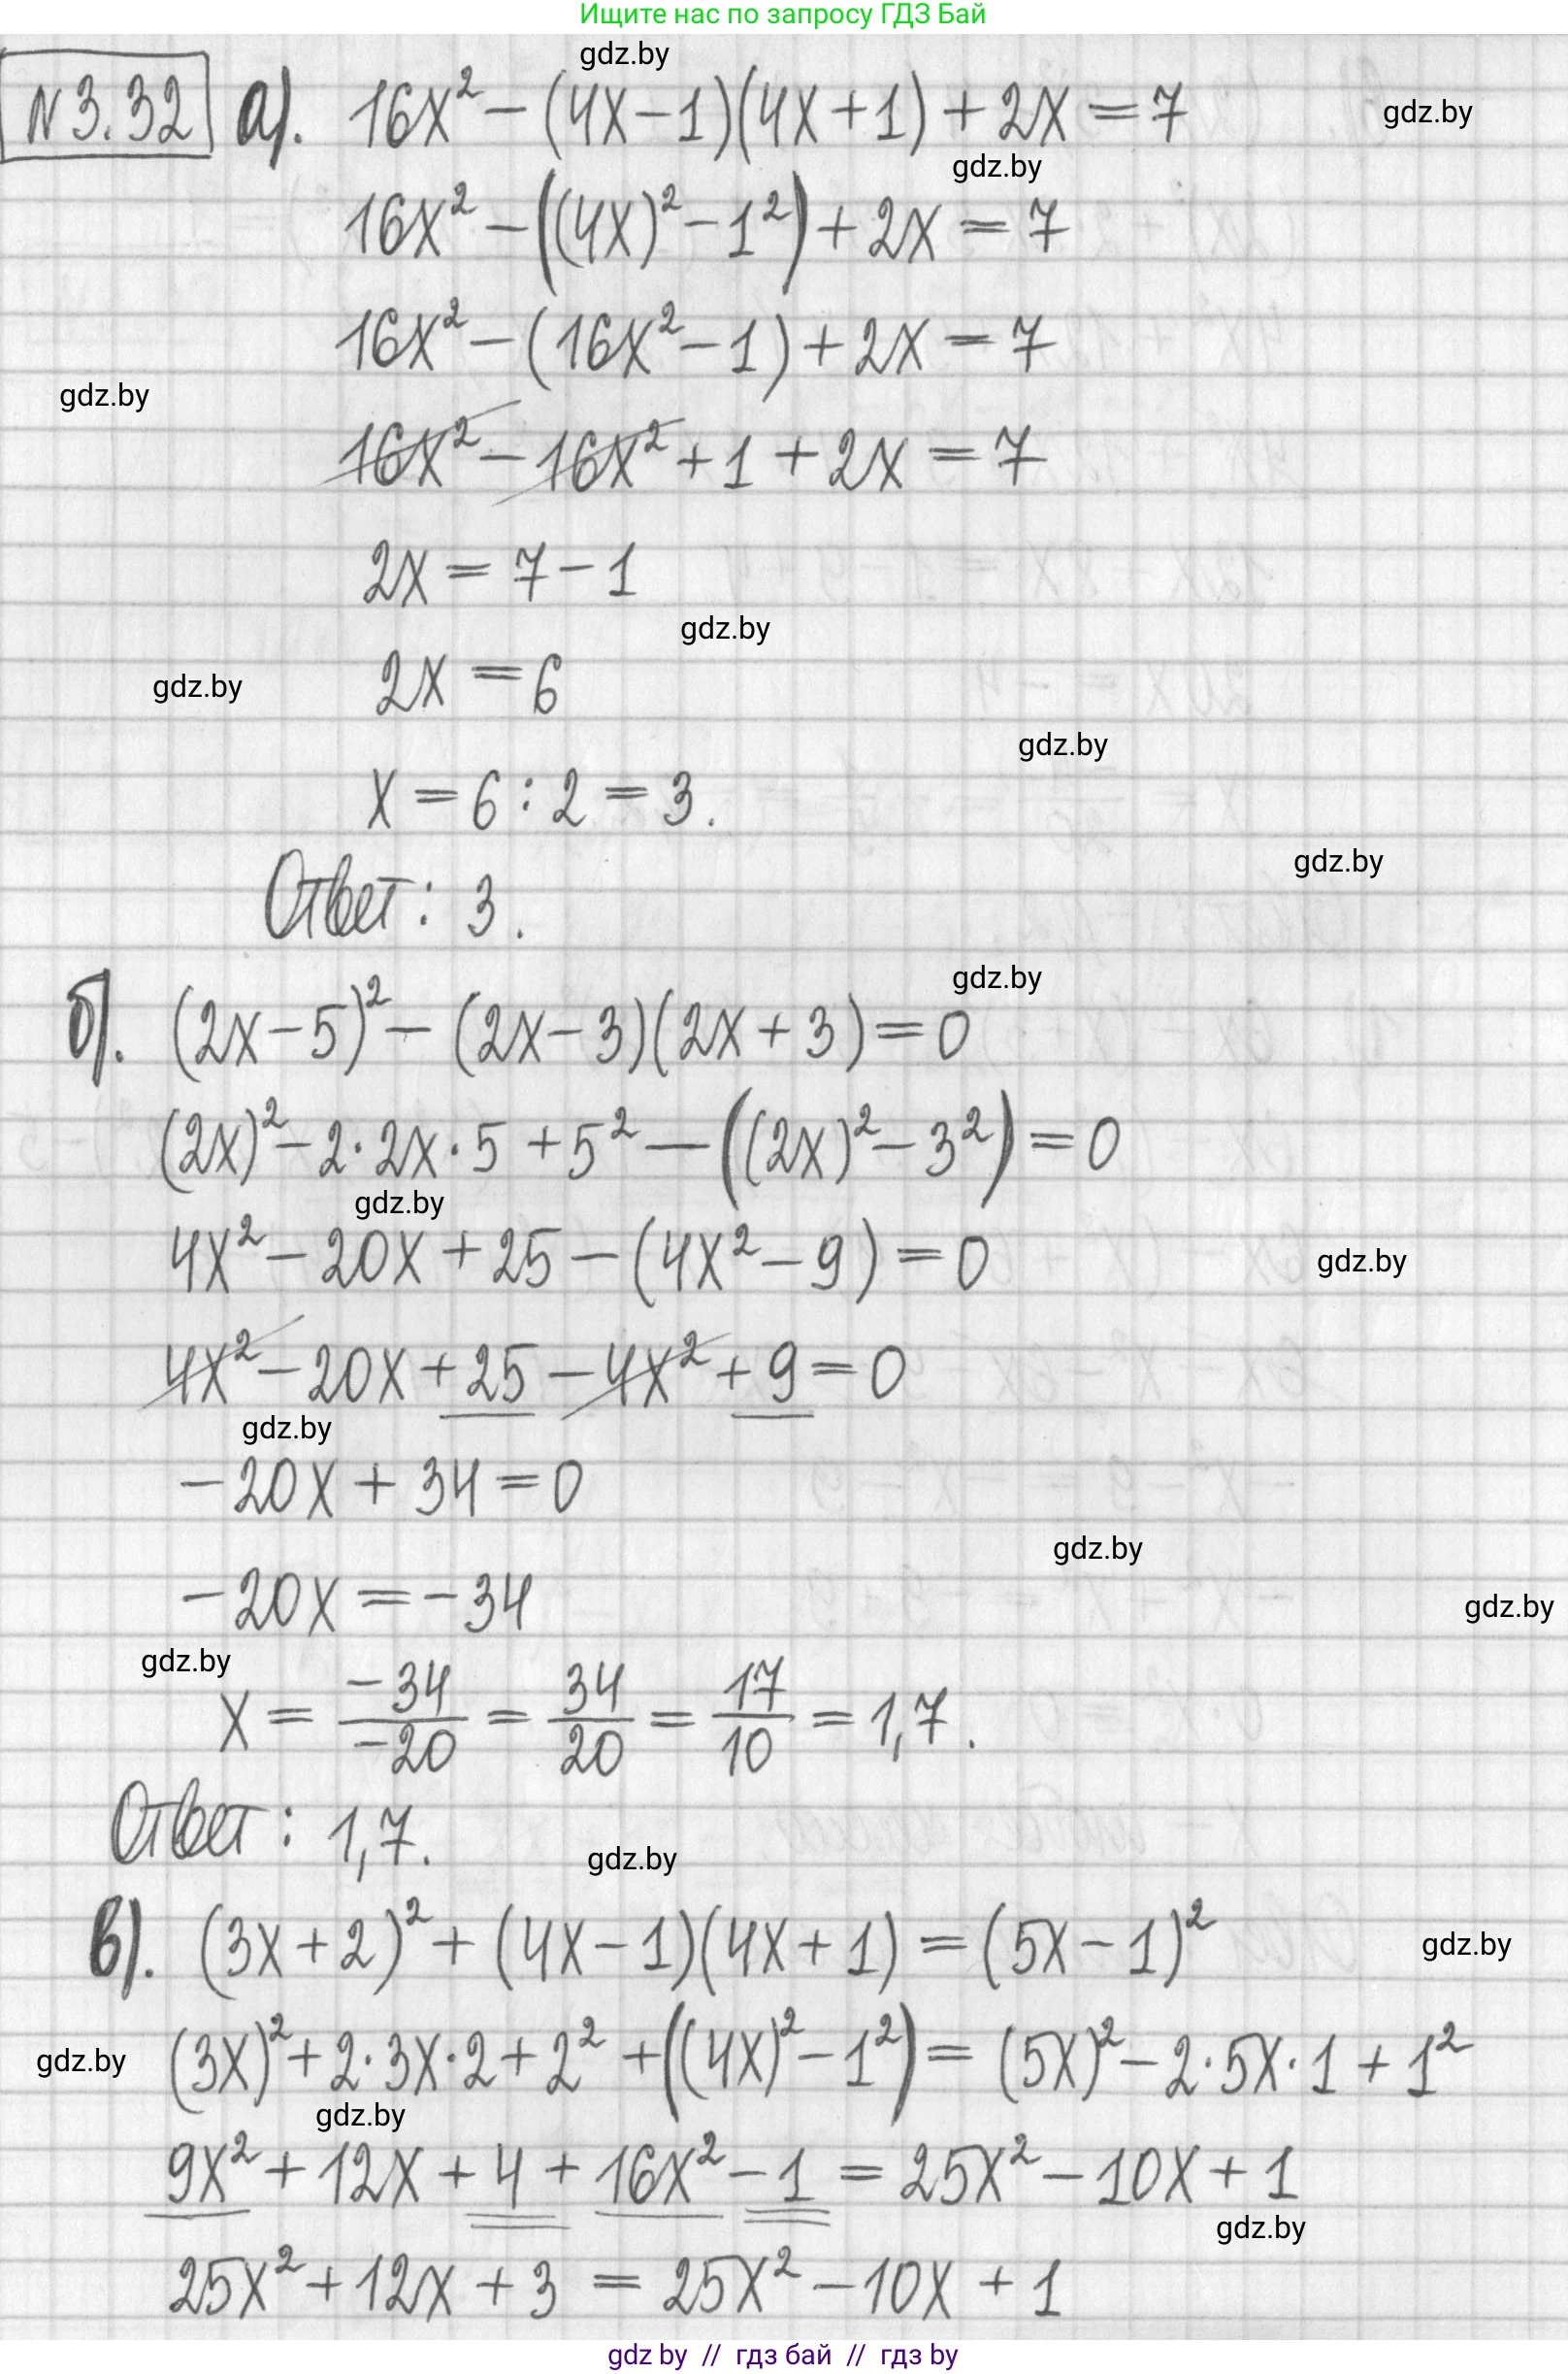 Ищите нас по запросу ГДЗ Бай
gdz.by
N 3.32 а). 16x² - (4x - 1)(4x + 1) + 2x = 7
gdz.by
gdz.by
16x² - ((4x)² - 1²) + 2x = 7
16x² - (16x² - 1) + 2x = 7
gdz.by
16x² - 16x² + 1 + 2x = 7
2x = 7 - 1
gdz.by
2x = 6
gdz.by
gdz.by
x = 6 : 2 = 3.
gdz.by
Ответ: 3.
gdz.by
б). (2x - 5)² - (2x - 3)(2x + 3) = 0
(2x)² - 2·2x·5 + 5² - ((2x)² - 3²) = 0
gdz.by
4x² - 20x + 25 - (4x² - 9) = 0
gdz.by
4x² - 20x + 25 - 4x² + 9 = 0
gdz.by
-20x + 34 = 0
gdz.by
-20x = -34
gdz.by
gdz.by
x = -34/-20 = 34/20 = 17/10 = 1,7.
Ответ: 1,7.
gdz.by
в). (3x + 2)² + (4x - 1)(4x + 1) = (5x - 1)²
gdz.by
(3x)² + 2·3x·2 + 2² + ((4x)² - 1²) = (5x)² - 2·5x·1 + 1²
gdz.by
gdz.by
9x² + 12x + 4 + 16x² - 1 = 25x² - 10x + 1
gdz.by
25x² + 12x + 3 = 25x² - 10x + 1
gdz by // гдз бай // гдз by